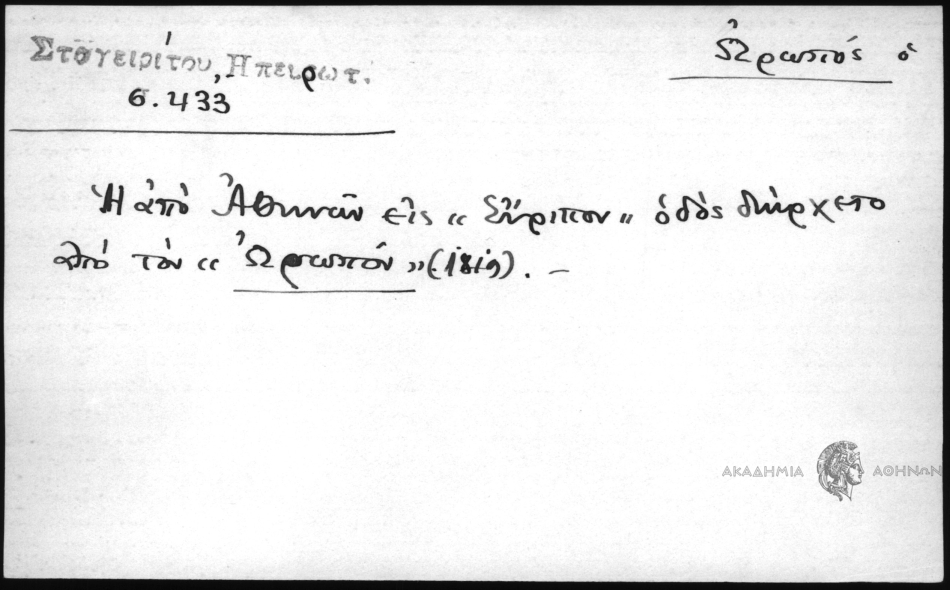 Σταγειρίτου, Ηπειρωτ.
σ. 433
Ὠρωπός ὁ
Ἡ ἀπὸ Ἀθηνῶν εἰς « Εὔριπον » ὁδὸς διήρχετο
ἀπό τὸν « Ὠρωπόν » (1819). –
ΑΚΑΔΗΜΙΑ ΑΘΗΝΩΝ